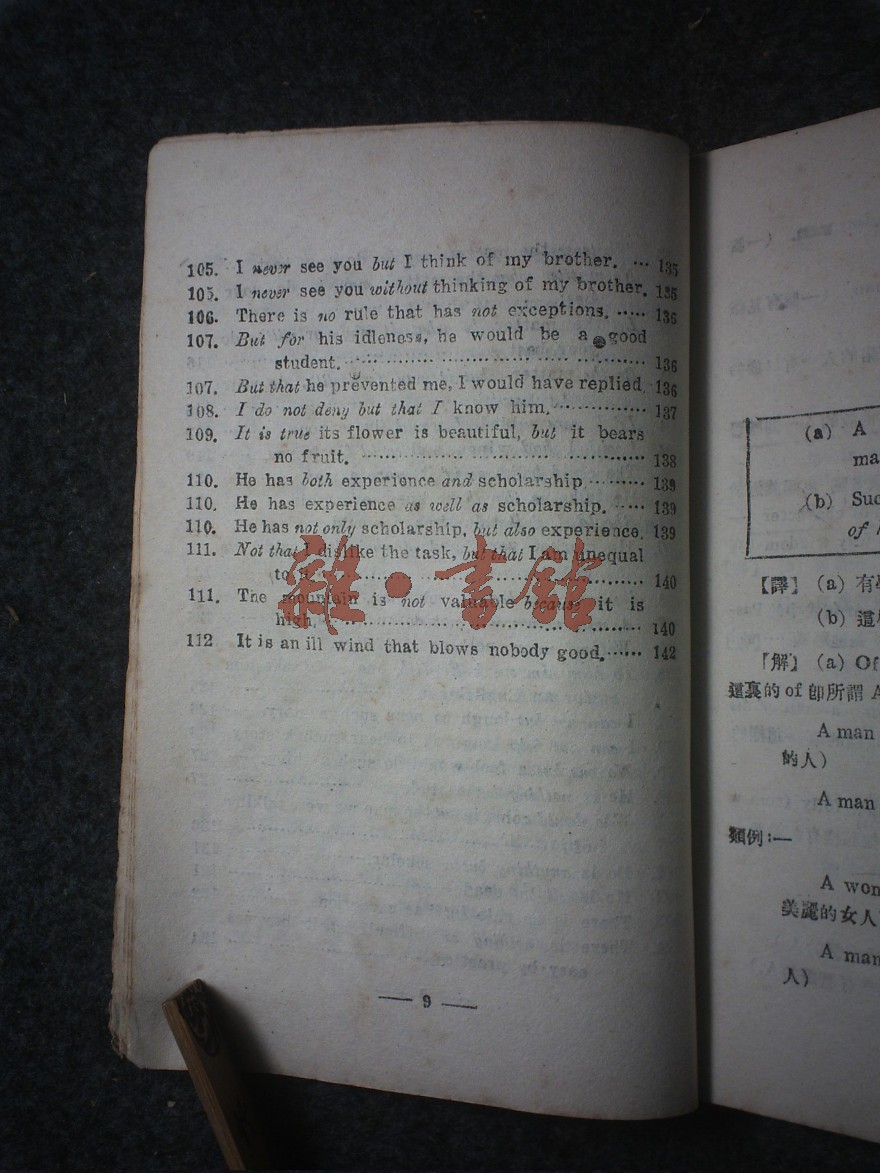 105. I never see you but I think of my brother. ... 135
105. I never see you without thinking of my brother. 135
106. There is no rule that has not exceptions. ..... 136
107. But for his idleness, he would be a good
student. ........................................ 136
107. But that he prevented me, I would have replied. 136
108. I do not deny but that I know him. ............. 137
109. It is true its flower is beautiful, but it bears
no fruit. ........................................ 138
110. He has both experience and scholarship ......... 139
110. He has experience as well as scholarship. ..... 139
110. He has not only scholarship, but also experience. 139
111. Not that I dislike the task, but that I am unequal
to it. ........................................ 140
111. The mountain is not valuable because it is
high. ........................................ 140
112 It is an ill wind that blows nobody good. ...... 142
雜·書館
— 9 —
(a) A
ma
(b) Suc
of
【譯】 (a) 有
(b) 這
「解」 (a) Of
這裏的 of 卽所謂 A
A man
的人）
A man
類例:—
A wom
美麗的女人
A man
人）